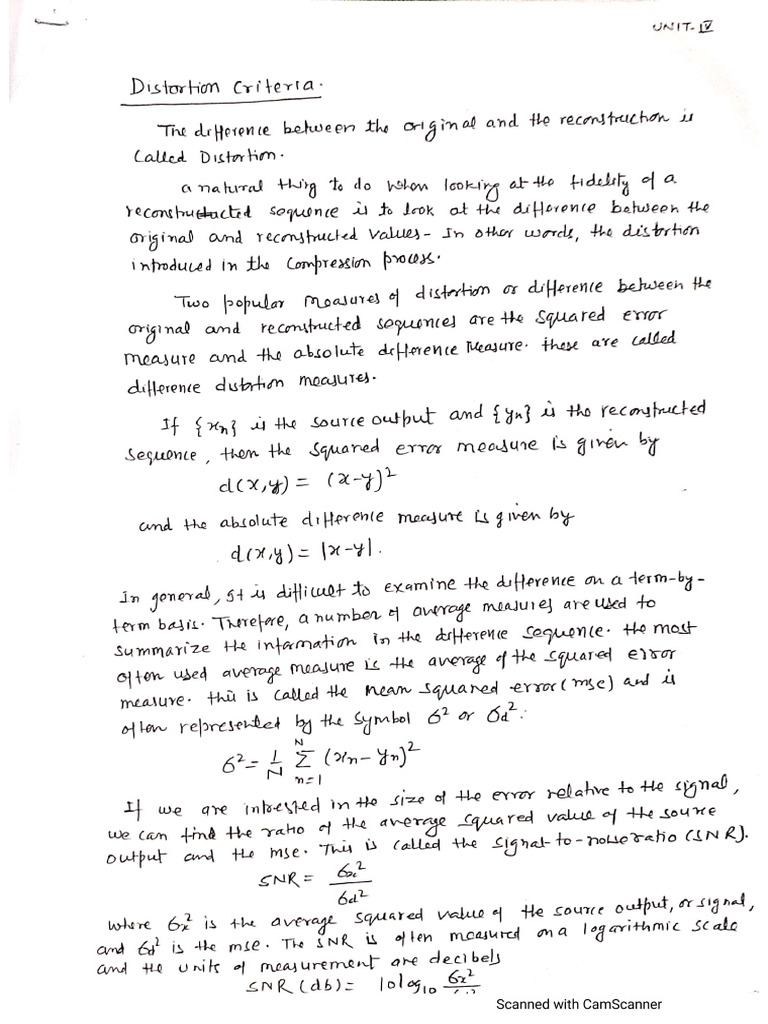 UNIT-IV
Distortion Criteria.
The difference between the original and the reconstruction is
Called Distortion.
a natural thing to do when looking at the fidelity of a
reconstructed sequence is to look at the difference between the
original and reconstructed values - In other words, the distortion
introduced in the compression process.
Two popular measures of distortion or difference between the
original and reconstructed sequences are the squared error
measure and the absolute difference Measure. these are called
difference distortion measures.
If {xn} is the source output and {yn} is the reconstructed
sequence, then the squared error measure is given by
d(x,y) = (x-y)²
and the absolute difference measure is given by
d(x,y) = |x-y|.
In general, It is difficult to examine the difference on a term-by-
term basis. Therefore, a number of average measures are used to
summarize the information in the difference sequence. the most
often used average measure is the average of the squared error
measure. this is called the mean squared error (mse) and is
often represented by the symbol σ² or σd²:
σ² = 1/N Σ_{n=1}^{N} (xn - yn)²
If we are intrested in the size of the error relative to the signal,
we can find the ratio of the average squared value of the source
output and the mse. This is called the signal-to-noise ratio (SNR).
SNR = σx²/σd²
where σx² is the average squared value of the source output, or signal,
and σd² is the mse. The SNR is often measured on a logarithmic scale
and the units of measurement are decibels
SNR (db) = 10log10 σx²
Scanned with CamScanner